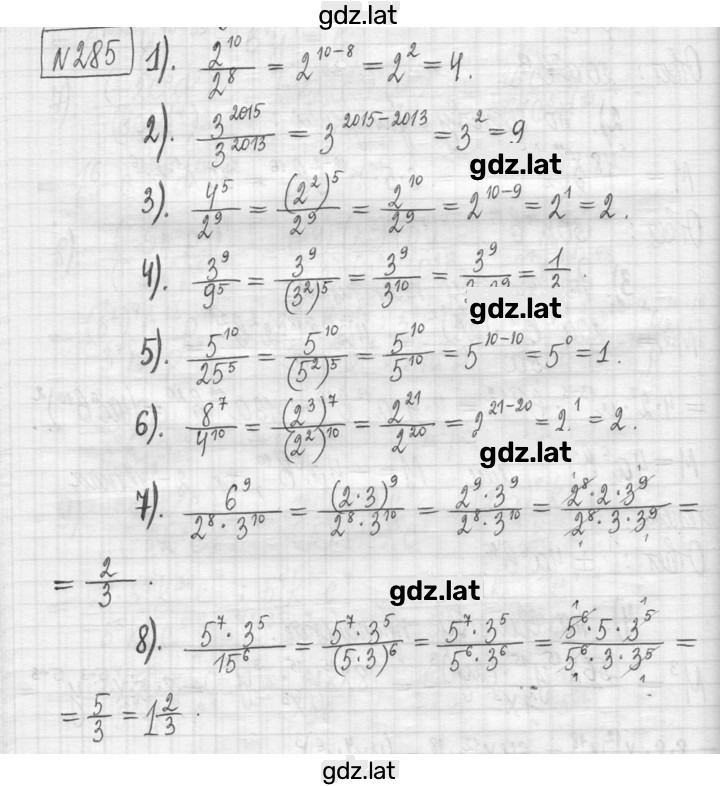 gdz.lat
№285 1). 2^10/2^8 = 2^(10-8) = 2^2 = 4.
2). 3^2015/3^2013 = 3^(2015-2013) = 3^2 = 9
gdz.lat
3). 4^5/2^9 = (2^2)^5/2^9 = 2^10/2^9 = 2^(10-9) = 2^1 = 2.
4). 3^9/9^5 = 3^9/(3^2)^5 = 3^9/3^10 = 3^9/ = 1/3.
gdz.lat
5). 5^10/25^5 = 5^10/(5^2)^5 = 5^10/5^10 = 5^(10-10) = 5^0 = 1.
6). 8^7/4^10 = (2^3)^7/(2^2)^10 = 2^21/2^20 = 2^(21-20) = 2^1 = 2.
gdz.lat
7). 6^9/(2^8·3^10) = (2·3)^9/(2^8·3^10) = (2^9·3^9)/(2^8·3^10) = (2^8·2·3^9)/(2^8·3·3^9) =
= 2/3.
gdz.lat
8). (5^7·3^5)/15^6 = (5^7·3^5)/(5·3)^6 = (5^7·3^5)/(5^6·3^6) = (5^6·5·3^5)/(5^6·3·3^5) =
= 5/3 = 1 2/3.
gdz.lat